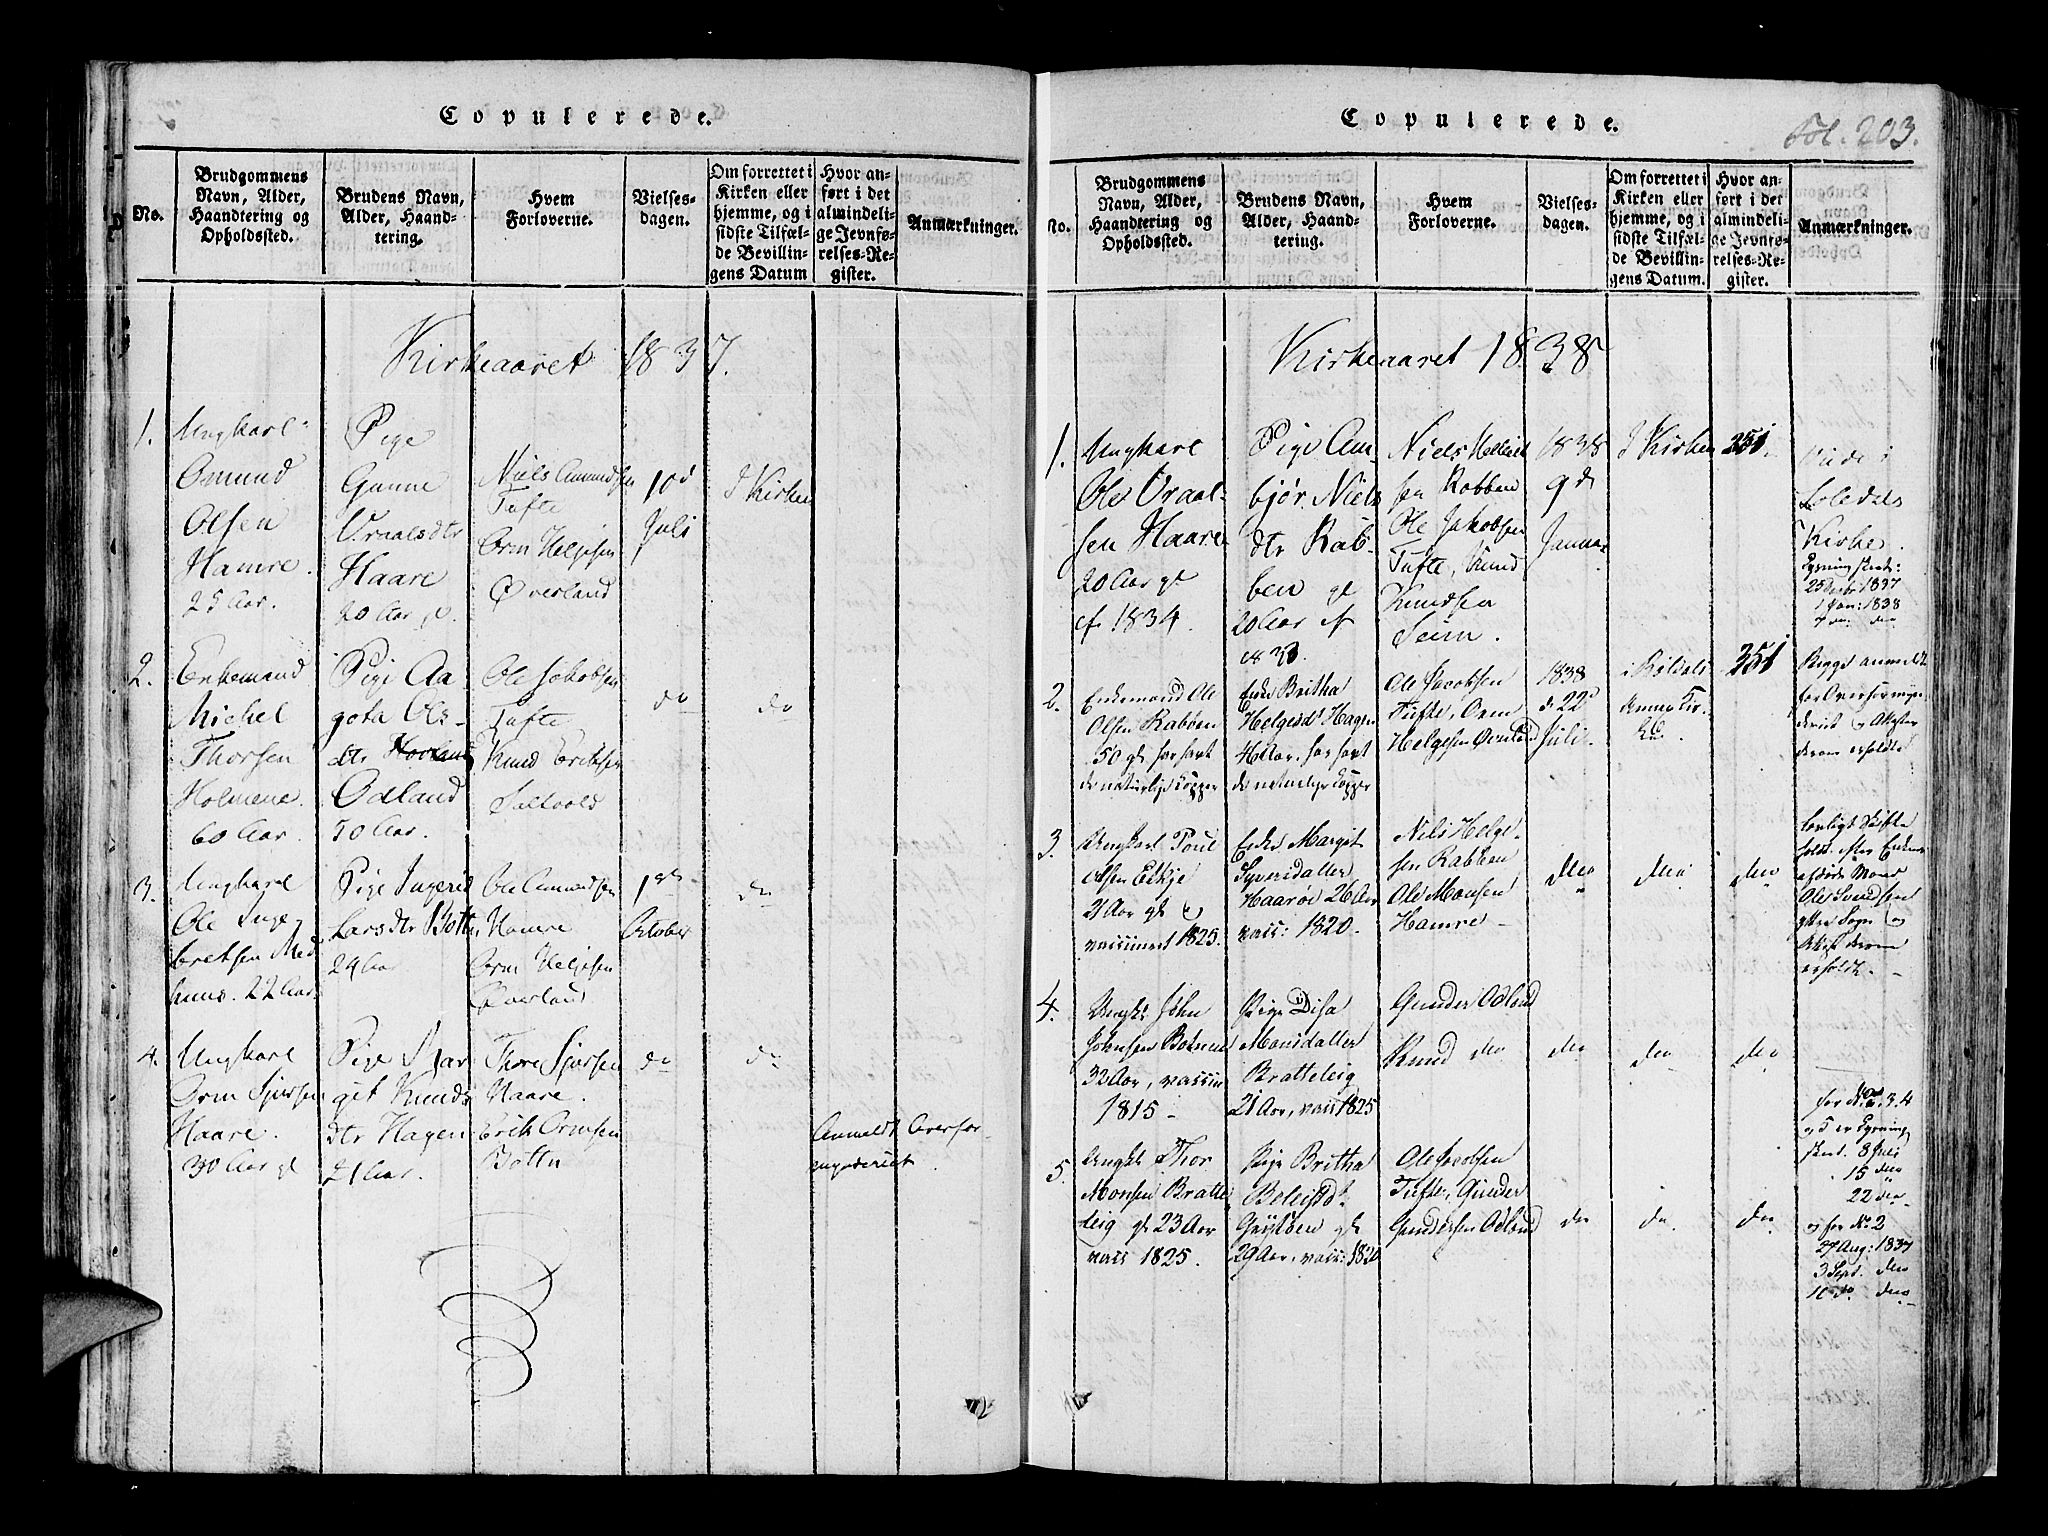 Copulerede.
No.
Brudgommens
Navn, Alder,
Haandtering og
Opholdssted.
Brudens Navn,
Alder, Haand-
tering.
Hvem
Forloverne.
Vielses-
dagen.
Om forrettet i
Kirken eller
hjemme, og i
sidste Tilfæl-
de Bevillin-
gens Datum
Hvor an-
ført i det
almindeli-
ge Jevnfø-
relses-Re-
gister.
Anmærkninger.
Kirkeaaret 1837.
1.
Ungkarl
Omund
Olsen
Hamre.
25 Aar.
Pige
Gunne
Vraalsdtr
Haare
20 Aar gl.
Niels Amundsen
Tufte
Orm Helgesen
Øverland
10d
Juli
I Kirken
2.
Enkemand
Michel
Thorsen
Holmene.
60 Aar.
Pige Aa
gota Ols-
dtr
Odland
50 Aar.
Ole Jakobsen
Tufte
Knud Eriksen
do
do
3.
Ungkarl
Ole Inge
bretsen Med
huus. 22 Aar.
Pige Ingerid
Larsdtr Bottn
29 Aar
Ole Amundsen
Hamre
Orm Helgesen
Øverland
1ste
October
do
4.
Ungkarl
Orm Sjursen
Haare.
30 Aar gl
Pige Mar
git Knuds
dtr Hagen
21 Aar.
Thore Sjursen
Haare.
Erik Ormsen
Bottn
do
do
Anmeldt Overfor-
mynderiet.
Copulerede.
Fol. 203.
No.
Brudgommens
Navn, Alder,
Haandtering og
Opholdssted.
Brudens Navn,
Alder, Haand-
tering.
Hvem
Forloverne.
Vielses-
dagen.
Om forrettet i
Kirken eller
hjemme, og i
sidste Tilfæl-
de Bevillin-
gens Datum.
Hvor an-
ført i det
almindeli-
ge Jevnfø-
relses-Re-
gister.
Anmærkninger.
Kirkeaaret 1838
1.
Ungkarl
Ole Vraal-
sen Haare
20 Aar gl
cf. 1834.
Pige Am-
bjør Niels
dtr Rab-
ben gl
20 Aar cf
Niels Helliech
sen Rabben
Ole Jakobsen
Tufte, Knud
Knudsen
Seim.
1838
9d
Januar
I Kirken
351.
Kirke.
25 Decbr: 1837
1 Jan: 1838
7 do: do
2.
Enkemand Ole
Olsen Rabben
50 gl. har havt
de naturlige Kopper
Enke Britha
Helgesdt Hagen
har havt
de naturlige Kopper
Ole Jacobsen
Tufte, Orm
Helgesen Øverland
1838
d. 22d
Juli.
i Røldals
Annex Kir-
ke.
351
Begge anmeldt
for Overformyn-
deriet og Attester
derom erholdte
3.
Ungkarl Poul
Olsen Eskje
21 Aar gl og
vaccineret 1825.
Enke Margit
Syversdatter
Haarøi 26 Aar
vacc: 1820.
Nils Helge-
sen Rabben
Ole Monsen
Hamre
do
do
do
Lovligt Skifte
holdt efter Enkens
afdøde Mand
Ole Svendsen
Attest derom
erholdt.
4.
Ungk: John
Johnsen Botnen
32 Aar, vaccin
1815
Pige Disa
Monsdatter
Bratteleig
21 Aar, vacc 1825
Gunder Odland
Knud do
do
do
do
5.
Ungk: Thor
Monsen Bratte
leig gl. 23 Aar
vacc 1825.
Pige Britha
gl.
29 Aar, vacc: 1820
Ole Jacobsen
Tufte, Gunder
Gundersen Odland
do
do
do
for No. 3. 4
og 5 er Lysning
skeet. 8 Juli
15 do
22 do
og for No 2
27 Aug: 1837
3 Sept. do
10 do do